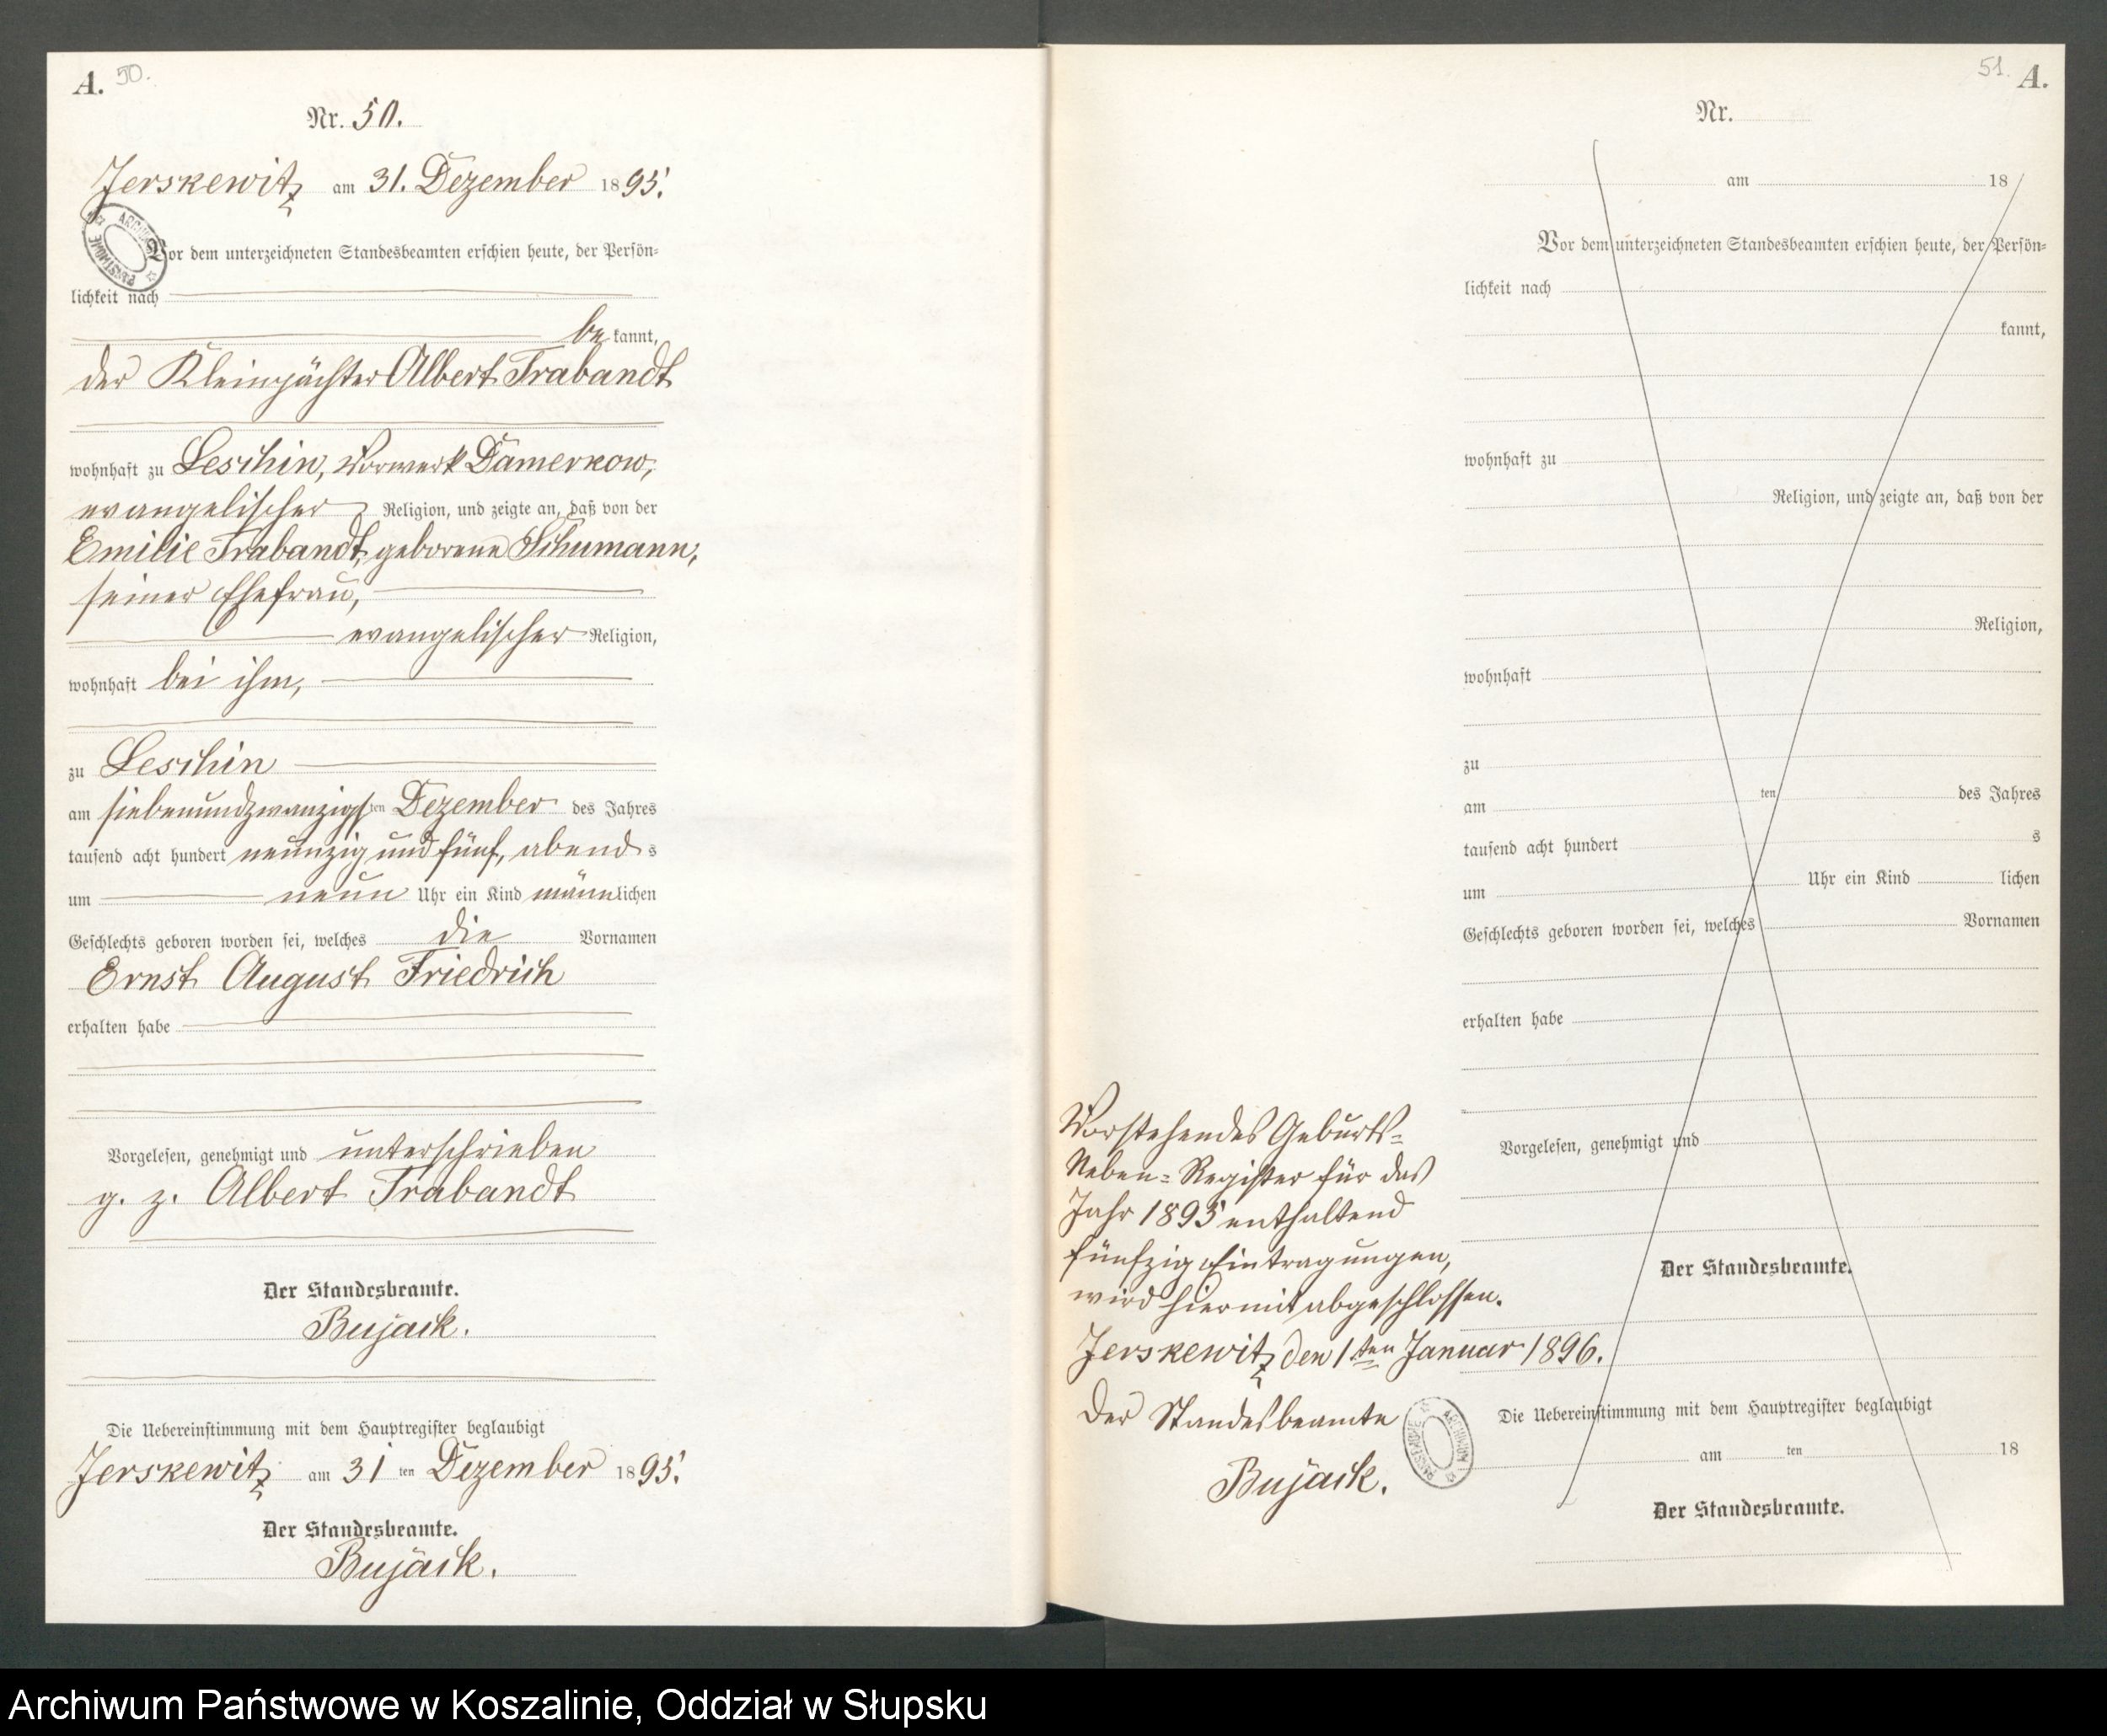 A. 50.
Nr. 50.
Jerskewitz am 31. Dezember 1895.
Vor dem unterzeichneten Standesbeamten erschien heute, der Persön-
lichkeit nach
be kannt,
der Kleinpächter Albert Trabandt
wohnhaft zu Leschin, Vorwerk Damerkow,
evangelischer Religion, und zeigte an, daß von der
Emilie Trabandt, geborene Schumann,
seiner Ehefrau,
evangelischer Religion,
wohnhaft bei ihm,
zu Leschin
am siebenundzwanzigsten Dezember des Jahres
tausend acht hundert neunzig und fünf, abends
um neun Uhr ein Kind männlichen
Geschlechts geboren worden sei, welches die Vornamen
Ernst August Friedrich
erhalten habe
Vorgelesen, genehmigt und unterschrieben
g. z. Albert Trabandt
Der Standesbeamte.
Bujack.
Die Uebereinstimmung mit dem Hauptregister beglaubigt
Jerskewitz am 31 ten Dezember 1895.
Der Standesbeamte.
Bujack.
51. A.
Nr.
am 18
Vor dem unterzeichneten Standesbeamten erschien heute, der Persön-
lichkeit nach
kannt,
wohnhaft zu
Religion, und zeigte an, daß von der
Religion,
wohnhaft
zu
am ten des Jahres
tausend acht hundert s
um Uhr ein Kind lichen
Geschlechts geboren worden sei, welches Vornamen
erhalten habe
Vorgelesen, genehmigt und
Der Standesbeamte.
Die Uebereinstimmung mit dem Hauptregister beglaubigt
am ten 18
Der Standesbeamte.
Vorstehendes Geburts-
Neben-Register für das
Jahr 1895 enthaltend
fünfzig Eintragungen,
wird hiermit abgeschlossen.
Jerskewitz den 1ten Januar 1896.
Der Standesbeamte
Bujack.
Archiwum Państwowe w Koszalinie, Oddział w Słupsku